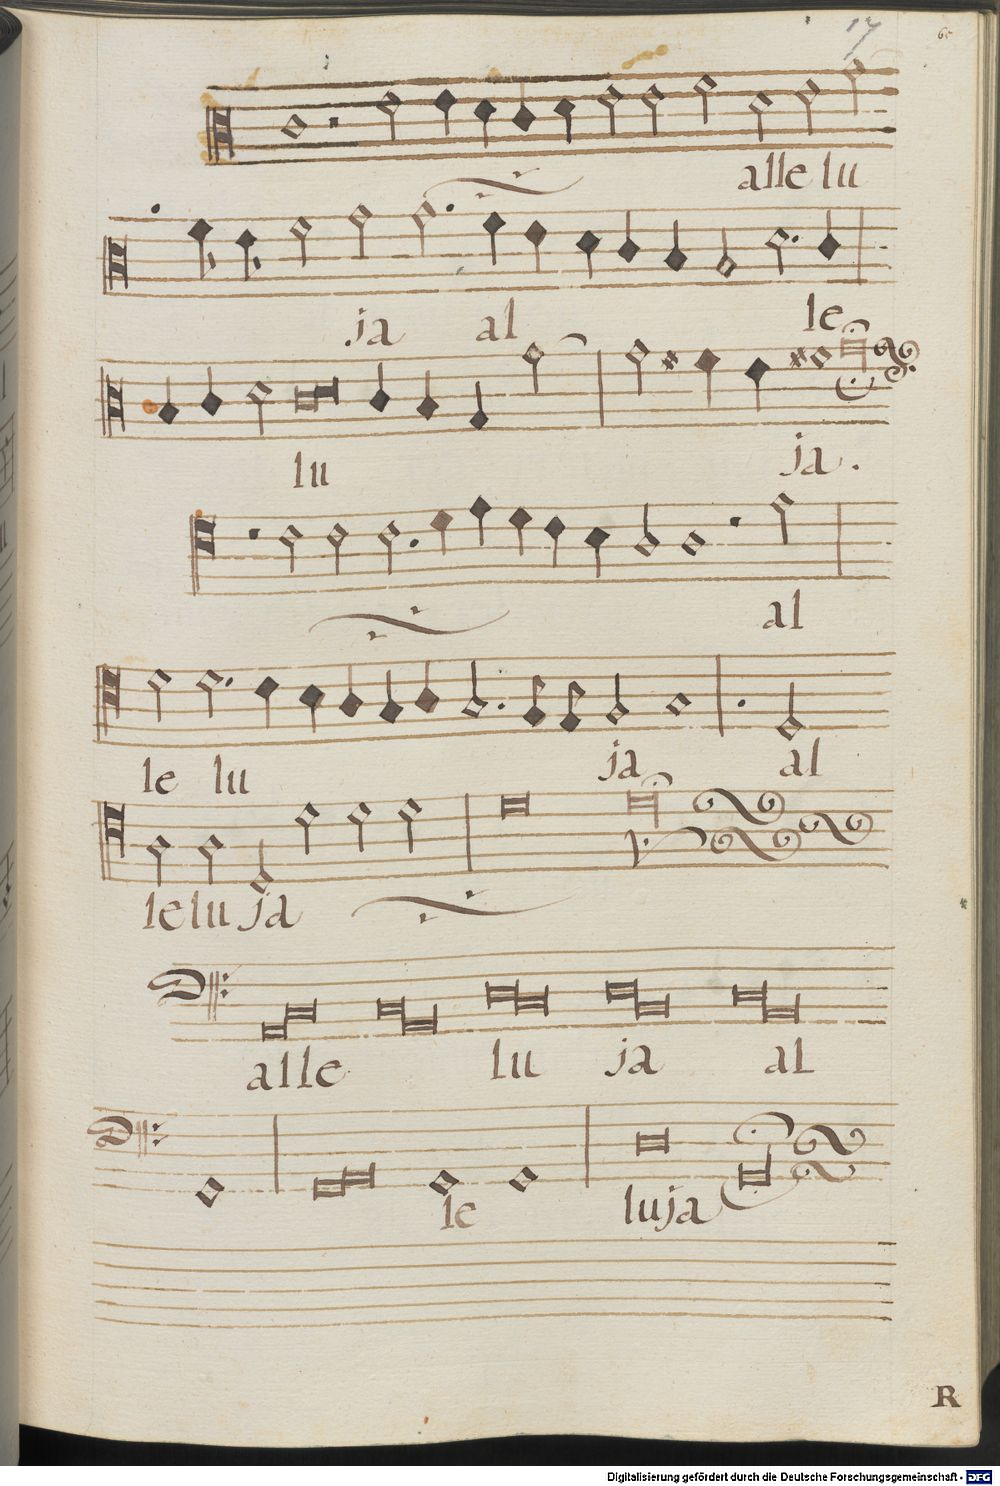 17
65
alle lu
ja al le
lu ja.
al
le lu ja al
le lu ja
alle lu ja al
le luja
R
Digitalisierung gefördert durch die Deutsche Forschungsgemeinschaft - DFG